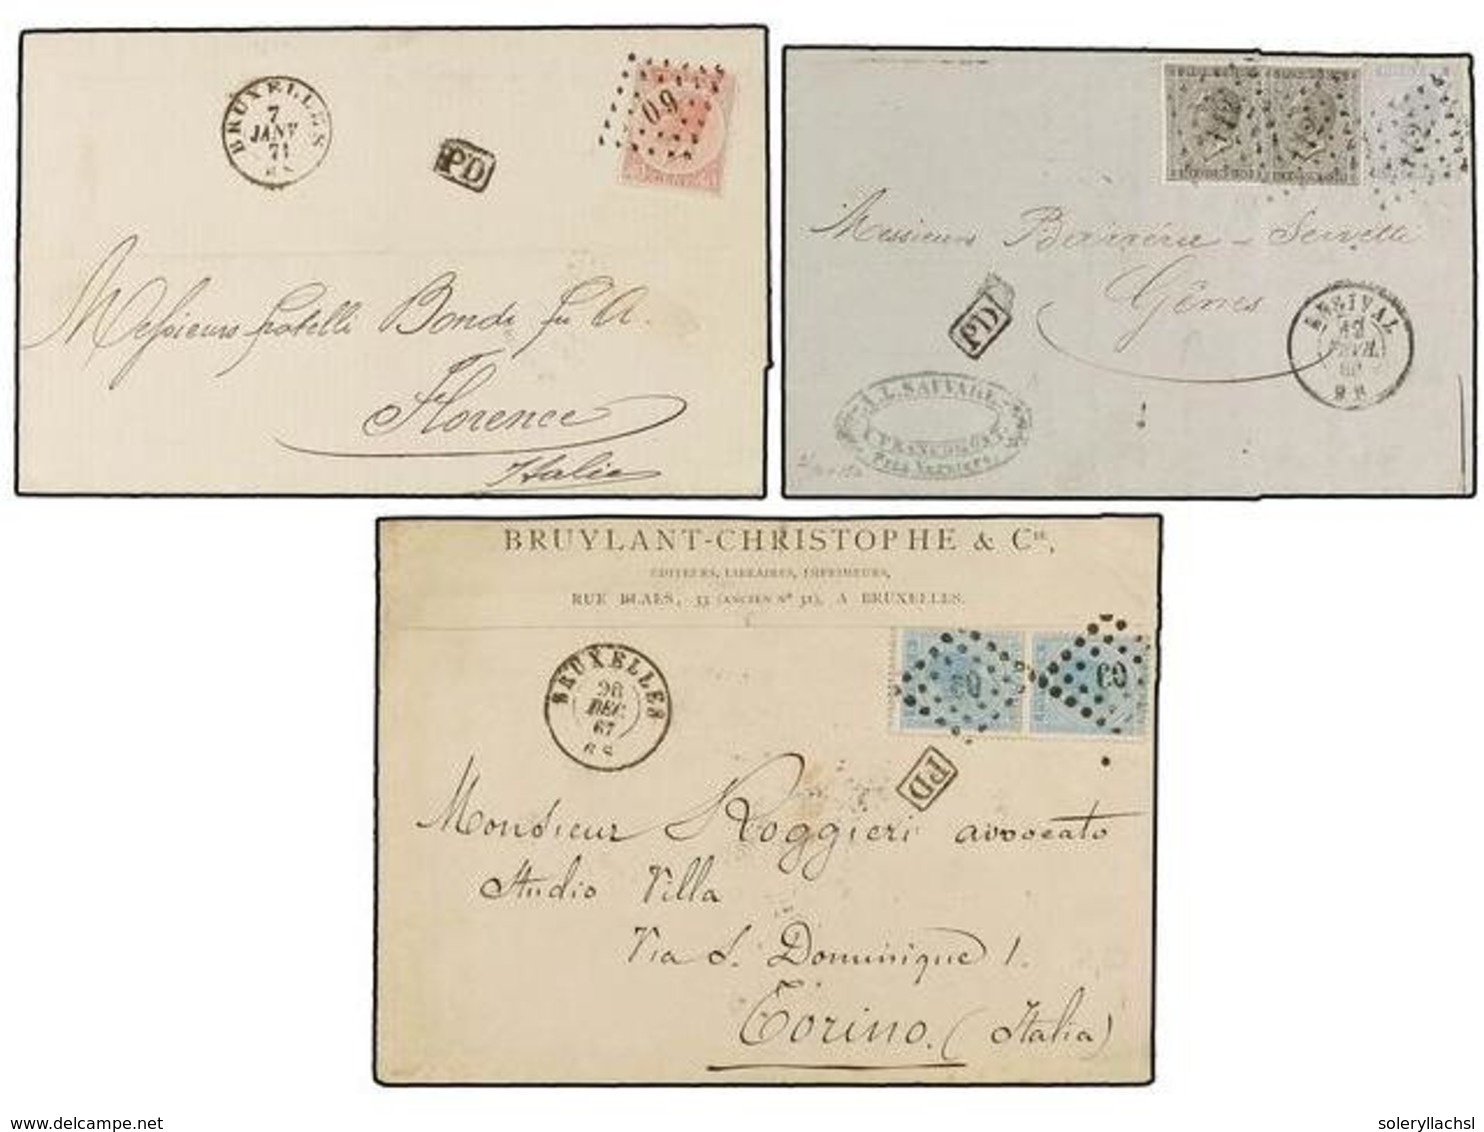 BRUXELLES
7
JANV
71
PD
60
Messieurs fratelli Bondi fu A.
Florence
Italie
112
112
112
Messieurs Barrérie
Gênes
PD
ENSIVAL
12
FEVR.
J. L. SAUVAGE
A FRANCOMONT
Près Verviers.
BRUYLANT-CHRISTOPHE & Cie,
EDITEURS, LIBRAIRES, IMPRIMEURS,
RUE BLAES, 33 (ANCIEN N° 31), A BRUXELLES.
BRUXELLES
28
DEC
67
6 S
60
60
PD
Monsieur Roggieri avvocato
Studio Villa
Via S. Dominique 1.
Torino. (Italia)
www.delcampe.net
soleryllachsl